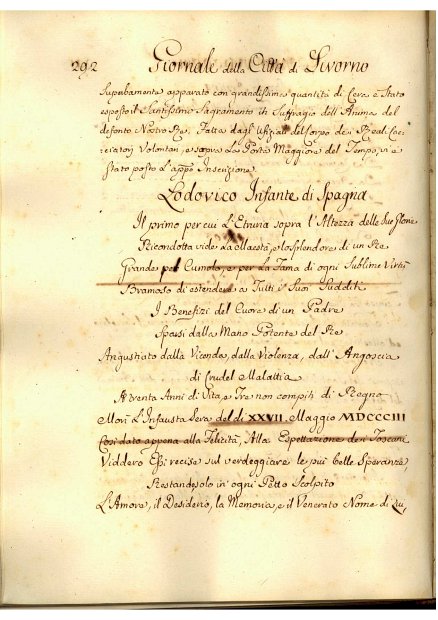 292 Giornale della Città di Livorno
Superbamente apparato con grandissima quantità di Cera è Stato
esposto il Santissimo Sagramento in Suffragio dell'Anima del
defonto Nostro Re, Fatta dagli Ufiziali del Corpo de i Reali
Volontari, e sopra La Porta Maggiore del Tempio, vi è
Stato posto L'app.o Inscrizione
Lodovico Infante di Spagna
Il primo per cui L'Etruria sopra l'Altezza delle Sue Glorie
Ricondotta vide La Maestà, e lo splendore di un Re
Grande pel Cumolo, e per La Fama di ogni Sublime Virtù
Bramoso di estendere a Tutti i Suoi Sudditi
I Benefizi del Cuore di un Padre
Sparsi dalla Mano Potente del Re
Angustiato dalla Vicenda, dalla Violenza, dall'Angoscia
di Crudel Malattia
A trenta Anni di Vita, e Tre non compiti di Regno
Morì L'Infausta Sera del dì XXVII. Maggio MDCCCIII
Così dato appena alla Felicità, Alla Espettazione dei Toscani
Viddero Essi recise sul verdeggiare le più belle Speranze,
Restando solo in ogni Petto Scolpito
L'Amore, il Desiderio, la Memoria, e il Venerato Nome di Lui,